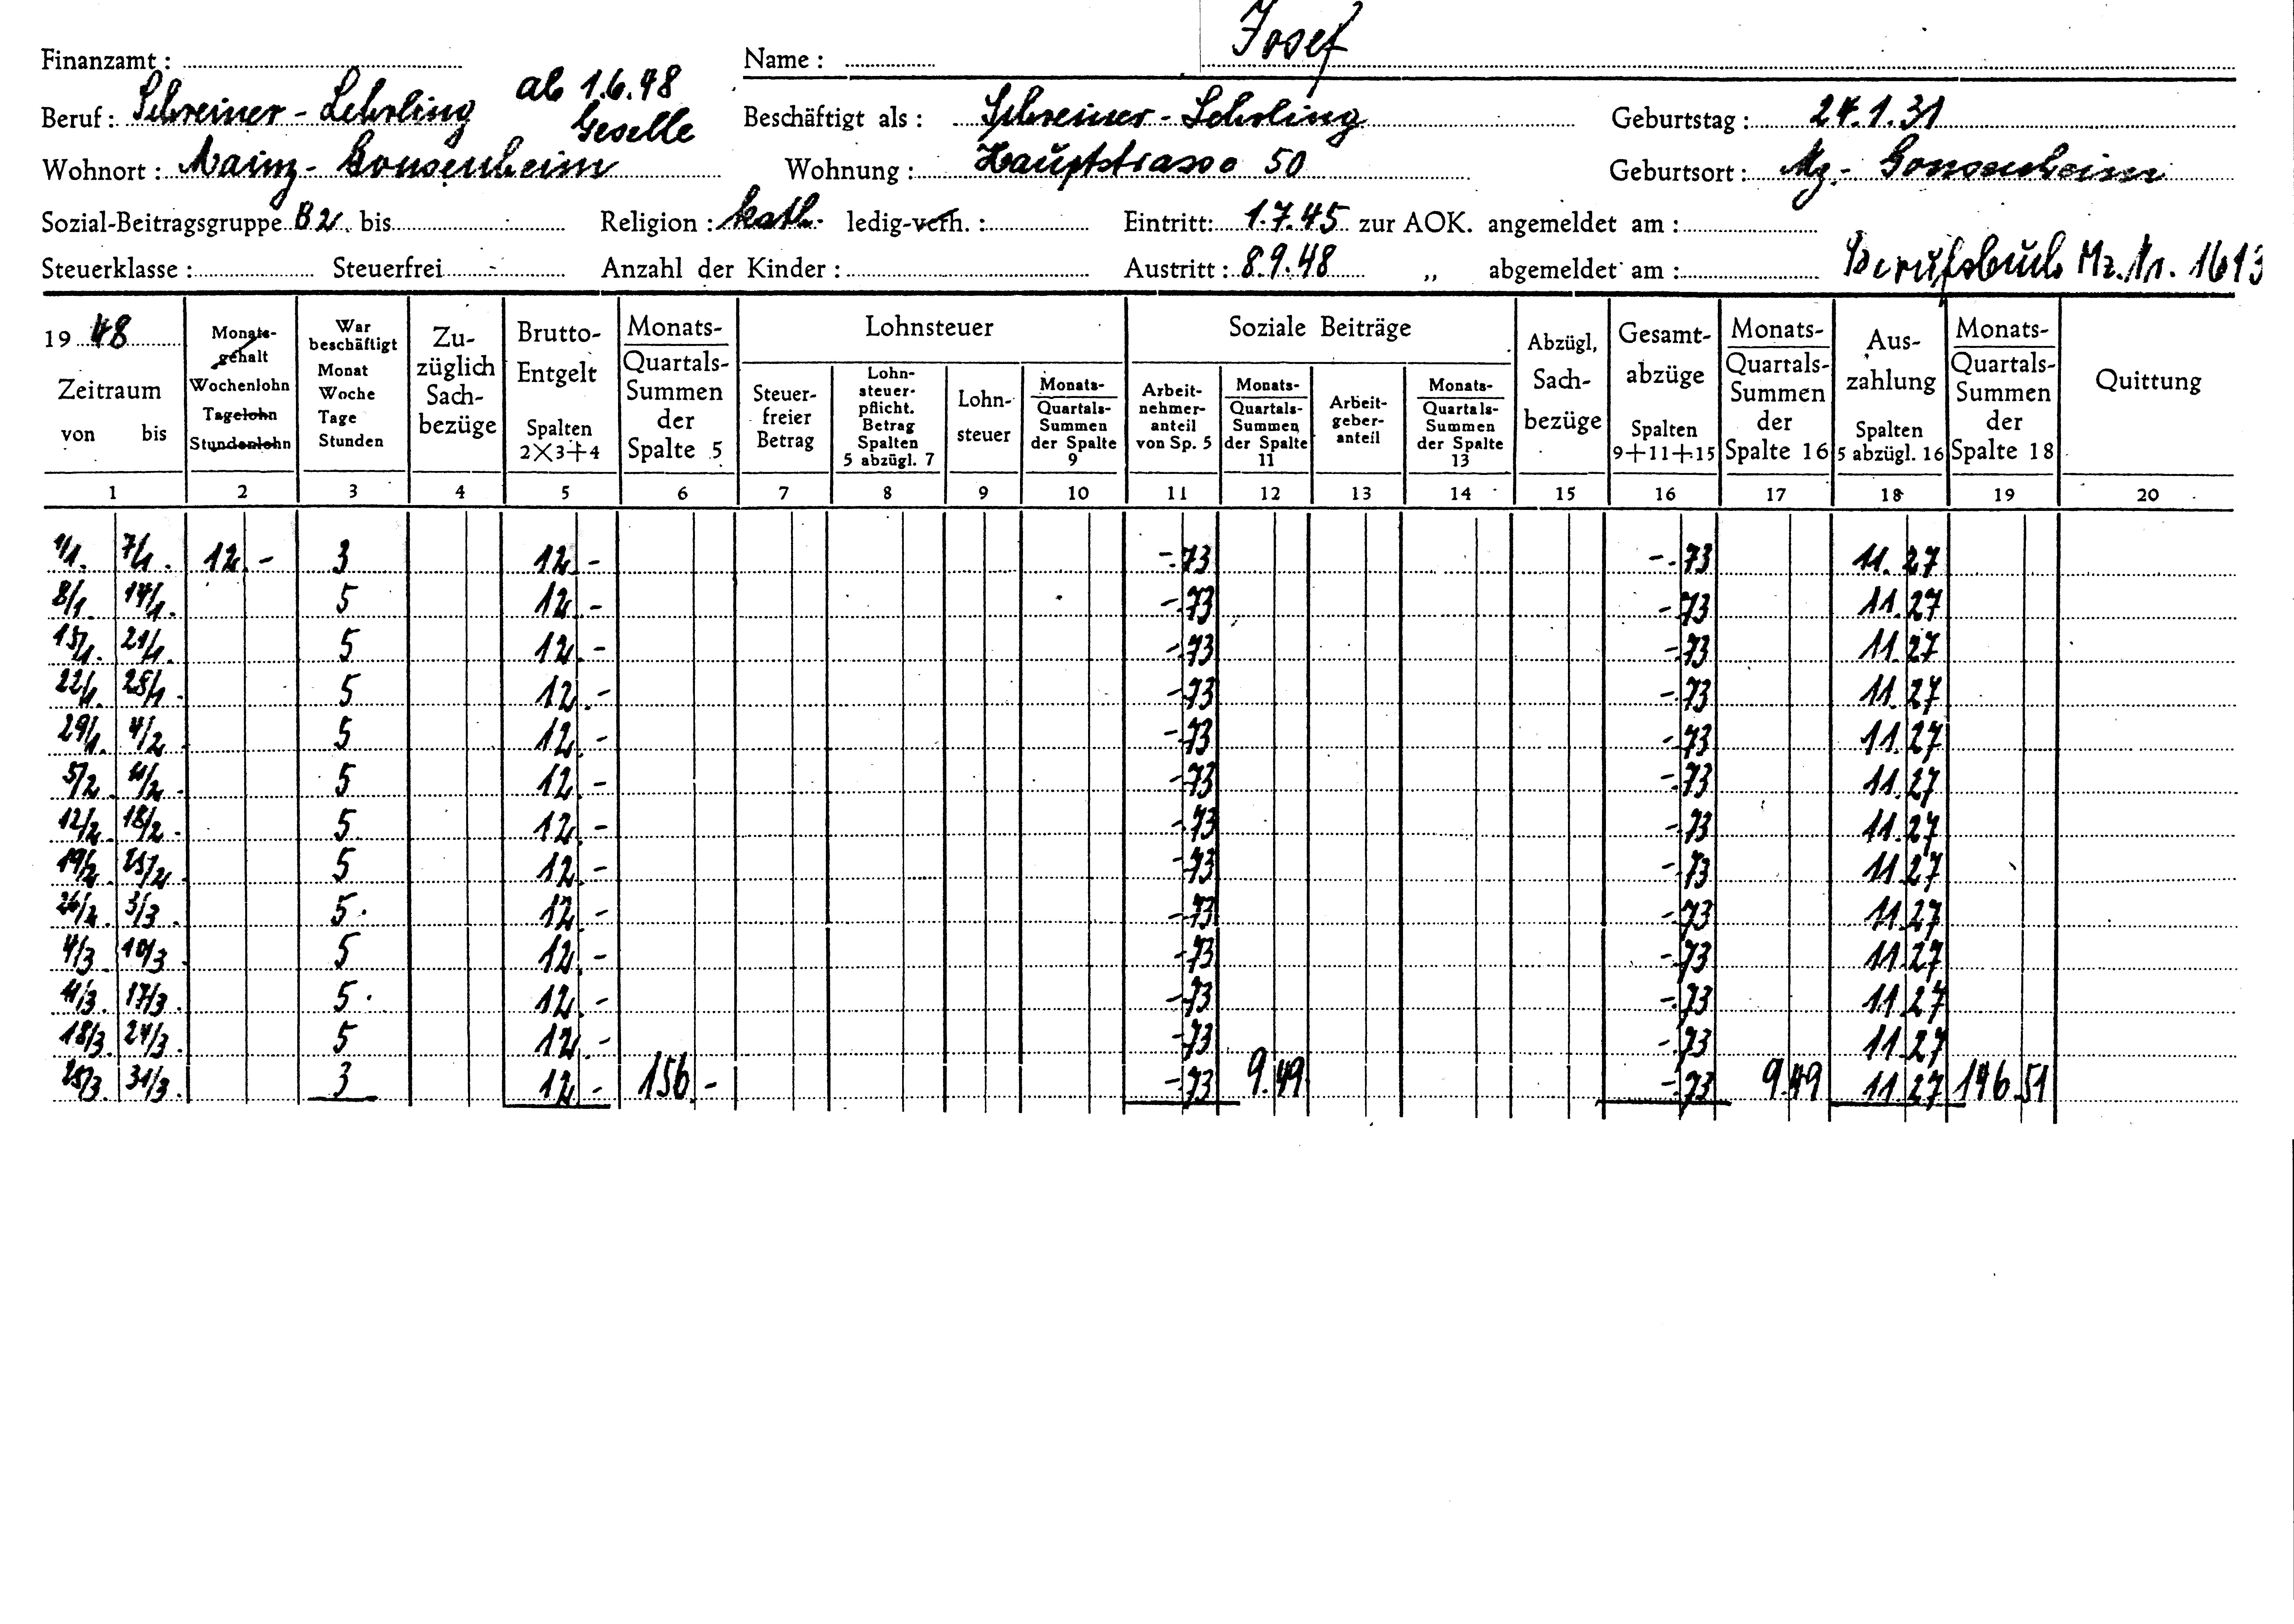 Josef
Finanzamt : Name :
Beruf : Schreiner - Lehrling ab 1.6.48 Geselle Beschäftigt als : Schreiner - Lehrling Geburtstag : 24.1.31
Wohnort : Mainz - Gonsenheim Wohnung : Hauptstrasse 50 Geburtsort : Mz. - Gonsenheim
Sozial-Beitragsgruppe B2 bis Religion : kath. ledig-verh. : Eintritt: 1.7.45 zur AOK. angemeldet am :
Steuerklasse : Steuerfrei - Anzahl der Kinder : Austritt : 8.9.48 „ abgemeldet am : Berufsbuch Mz. Nr. 1613
19 48 Zeitraum von bis
Monats-gehalt Wochenlohn Tagelohn Stundenlohn
War beschäftigt Monat Woche Tage Stunden
Zu-züglich Sach-bezüge
Brutto-Entgelt Spalten 2×3+4
Monats- Quartals-Summen der Spalte 5
Lohnsteuer
Steuer-freier Betrag
Lohn-steuer-pflicht. Betrag Spalten 5 abzügl. 7
Lohn-steuer
Monats- Quartals-Summen der Spalte 9
Soziale Beiträge
Arbeit-nehmer-anteil von Sp. 5
Monats- Quartals-Summen der Spalte 11
Arbeit-geber-anteil
Monats- Quartals-Summen der Spalte 13
Abzügl. Sach-bezüge
Gesamt-abzüge Spalten 9+11+15
Monats- Quartals-Summen der Spalte 16
Aus-zahlung Spalten 5 abzügl. 16
Monats- Quartals-Summen der Spalte 18
Quittung
1 2 3 4 5 6 7 8 9 10 11 12 13 14 15 16 17 18 19 20
1/1. 7/1. 12.- 3 12.- -.73 -.73 11.27
8/1. 14/1. 5 12.- -.73 -.73 11.27
15/1. 21/1. 5 12.- -.73 -.73 11.27
22/1 28/1. 5 12.- -.73 -.73 11.27
29/1. 4/2. 5 12.- -.73 -.73 11.27
5/2. 11/2. 5 12.- -.73 -.73 11.27
12/2. 18/2. 5 12.- -.73 -.73 11.27
19/2. 25/2. 5 12.- -.73 -.73 11.27
26/2. 3/3. 5. 12.- -.73 -.73 11.27
4/3. 10/3. 5 12.- -.73 -.73 11.27
11/3. 17/3. 5. 12.- -.73 -.73 11.27
18/3. 24/3. 5 12.- -.73 -.73 11.27
25/3. 31/3. 3 12.- 156.- -.73 9.49 -.73 9.49 11.27 146.51